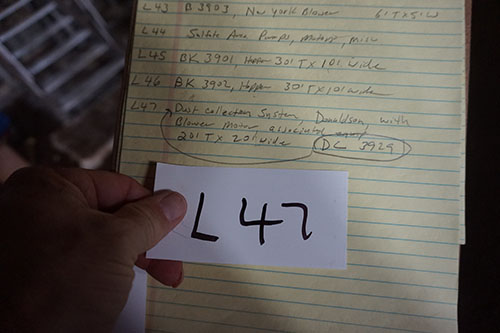 L43 B 3903, New York Blower 6'T X 5'W
L44 Sulfite Area Pumps, Motors, Misc
L45 BK 3901, Hopper 30'T X 10' wide
L46 BK 3902, Hopper 30'T X 10' wide
L47 Dust collection System, Donaldson, with
Blower motor, associated
20'T X 20' wide DC 3929
L 47